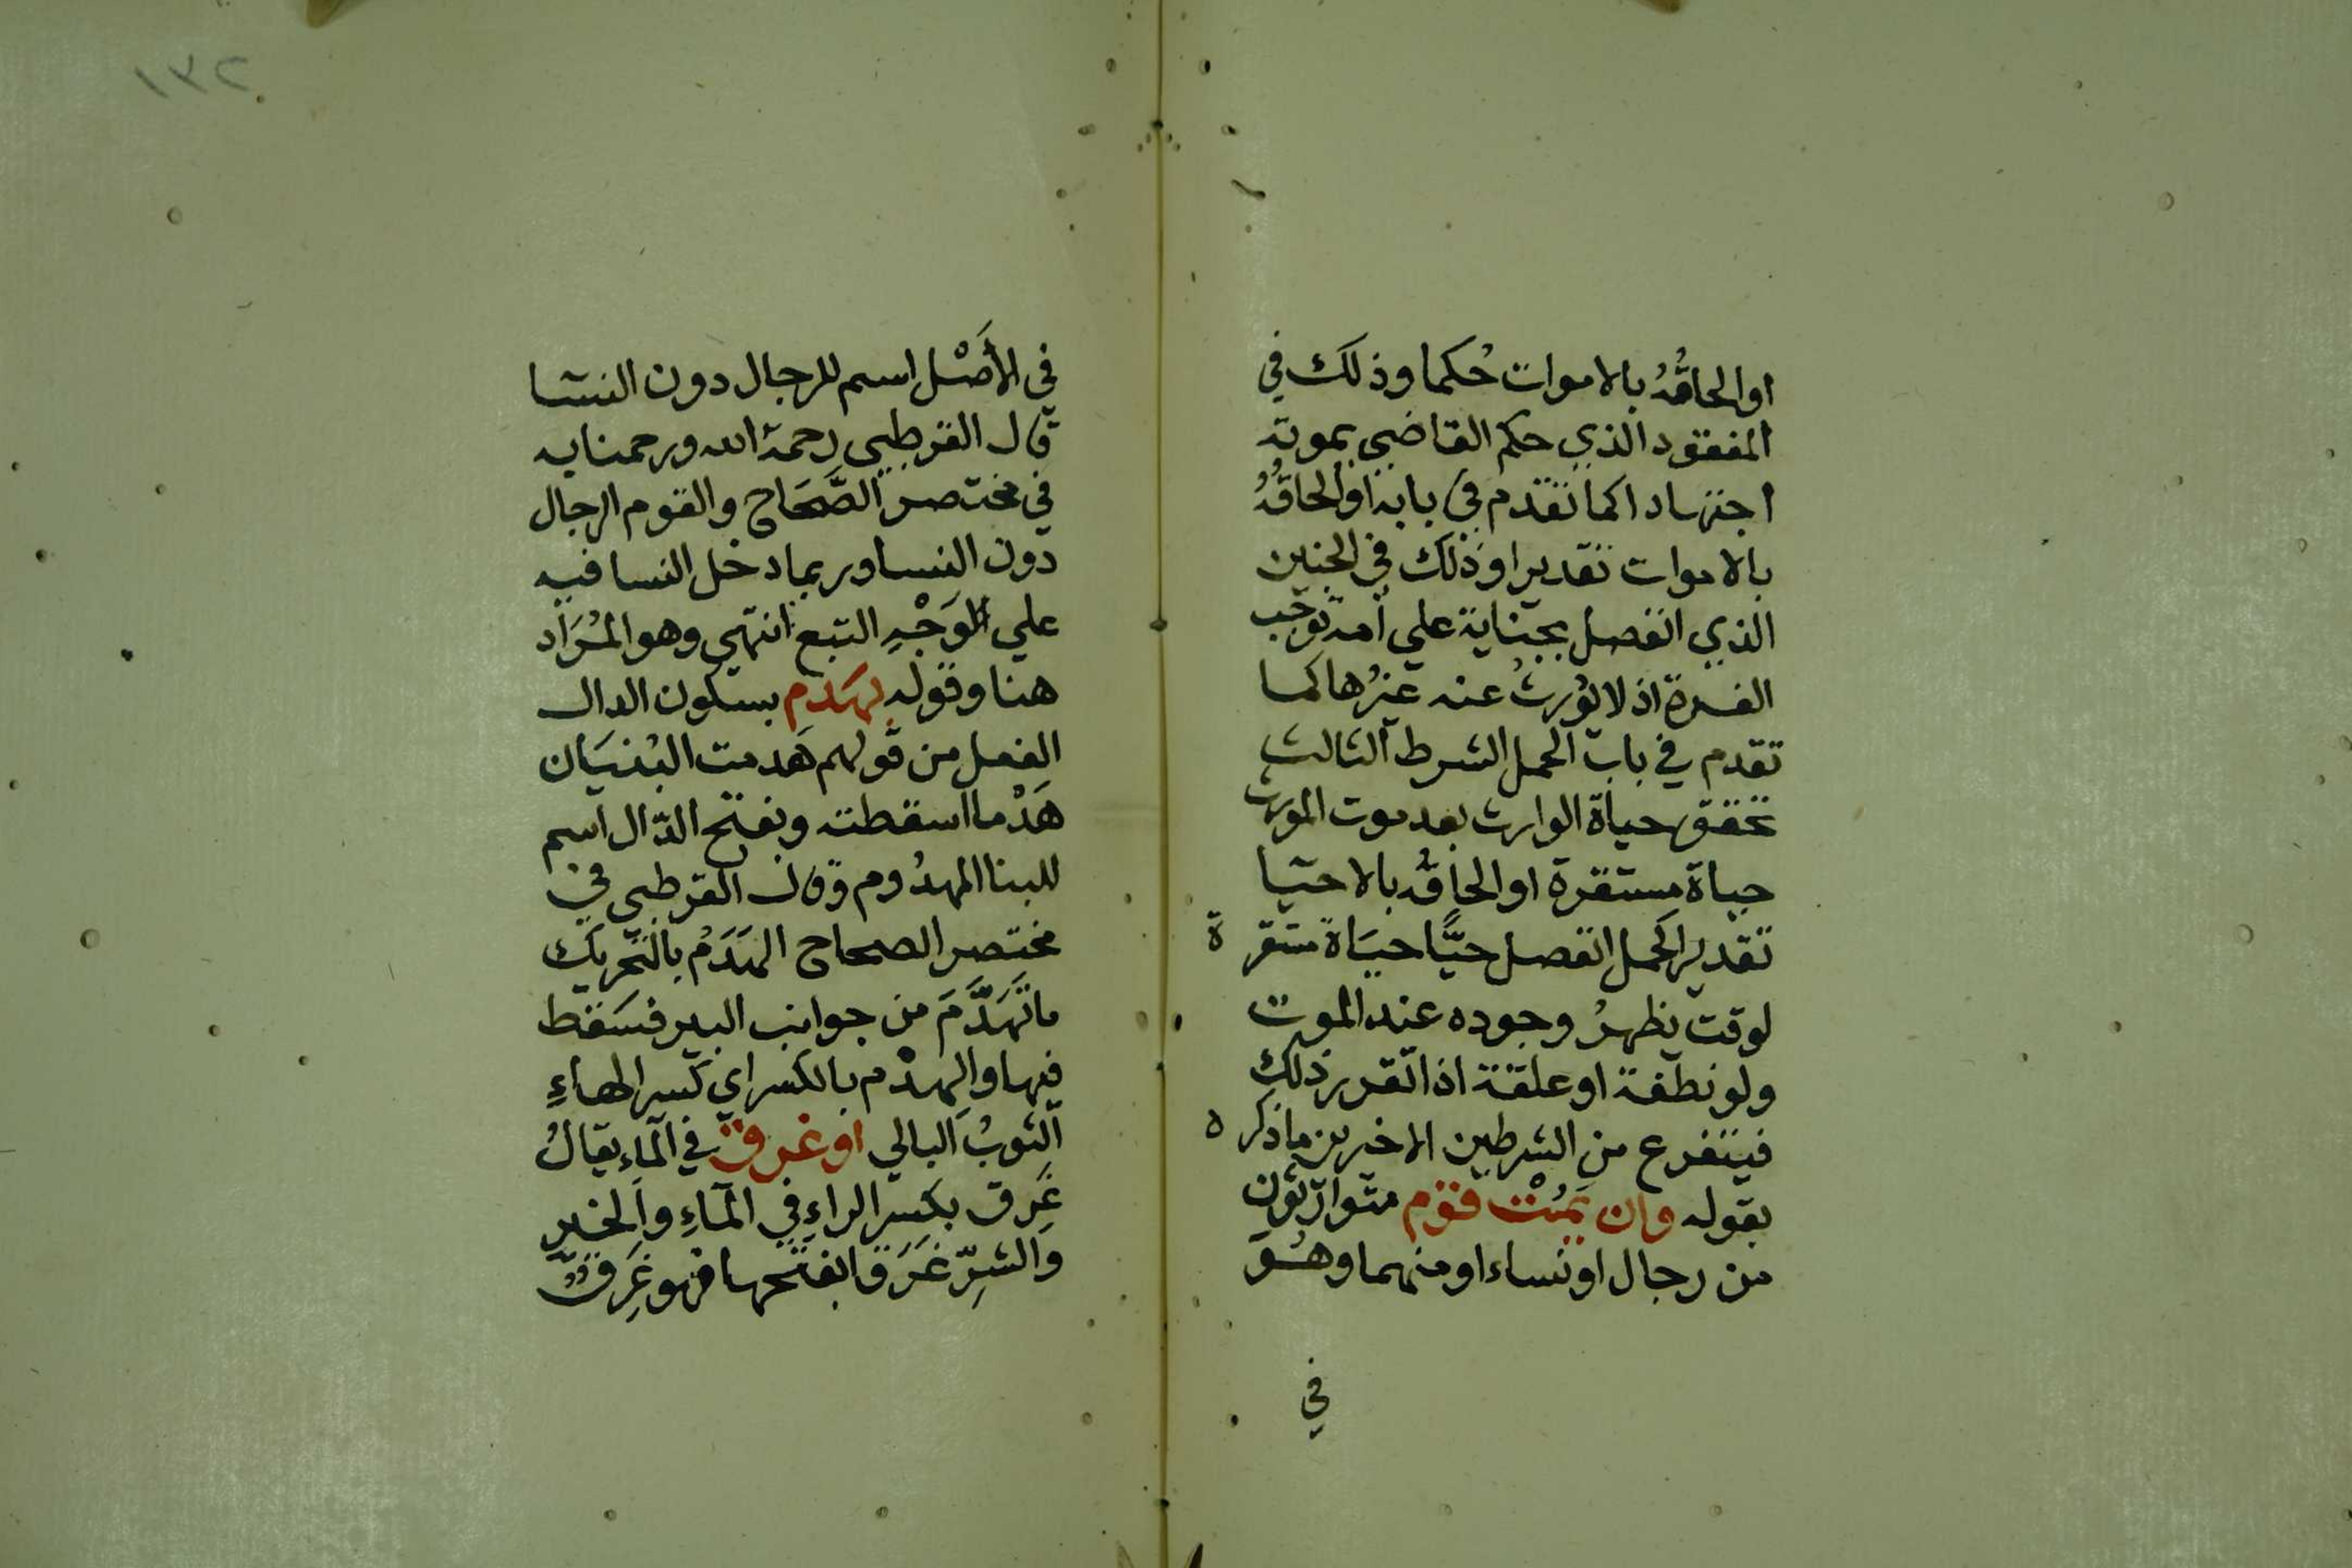 او الحاقُهُ بالاموات حُكما وذلك في
المفقود الذي حكم القاضي بموته
اجتهادا كما تقدم في بابه او الحاقُهُ
بالاموات تقديرا وذلك في الجنين
الذي انفصل بجناية علي امه توجب
الغرة اذ لا يُورثُ عنه غيرُها كما
تقدم في باب الحمل الشرط الثالث
تحقق حياة الوارث بعد موت المورث
حياة مستقرة او الحاقُه بالاحيا
تقديرا كحمل انفصل حيًّا حيَاة مستقرة
لوقت يظهرُ وجوده عند الموت
ولو نطفة او علقة اذا تقرر ذلك
فيتفرع من الشرطين الاخرين ما ذكره
بقوله وان يَمُتْ قوم متوارثون
من رجال او نساء او منهما وهُو
في
١٣٢
في الأَصْل اسم للرجال دون النسا
قال القرطبي رحمه الله ورحمنا به
في مختصر الصَّحَاح والقوم الرجال
دون النسا وربما دخل النسا فيه
علي الوَجْهِ التبع انتهي وهو المُرَاد
هنا وقوله بهَدمِ بسكون الدال
الفعل من قولهم هَدمت البُنيَان
هَدْما اسقطته وبفتح الدّال اسم
للبنا المهدُوم وقال القرطبي في
مختصر الصحاح الهَدَمُ بالتحريك
ما تَهَدَّمَ من جوانب البير فسَقط
فيها والهِدْم بالكسر اي كسر الهاءِ
الثوبُ البالي او غرق في الماءِ يقالُ
غَرِق بكسر الراءِ في الماءِ والخيرِ
والشرِّ غَرَقا بفتحها فهو غَرِقٌ